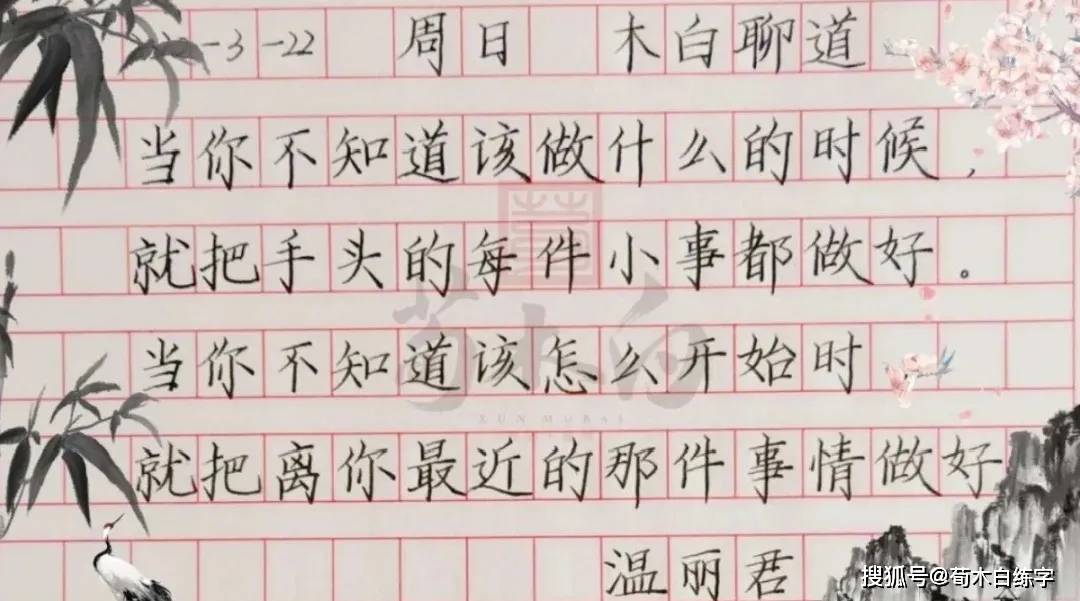 -3-22 周日 木白聊道
当你不知道该做什么的时候，
就把手头的每件小事都做好。
当你不知道该怎么开始时
就把离你最近的那件事情做好
温丽君
荀木白
XUN MUBAI
搜狐号@荀木白练字